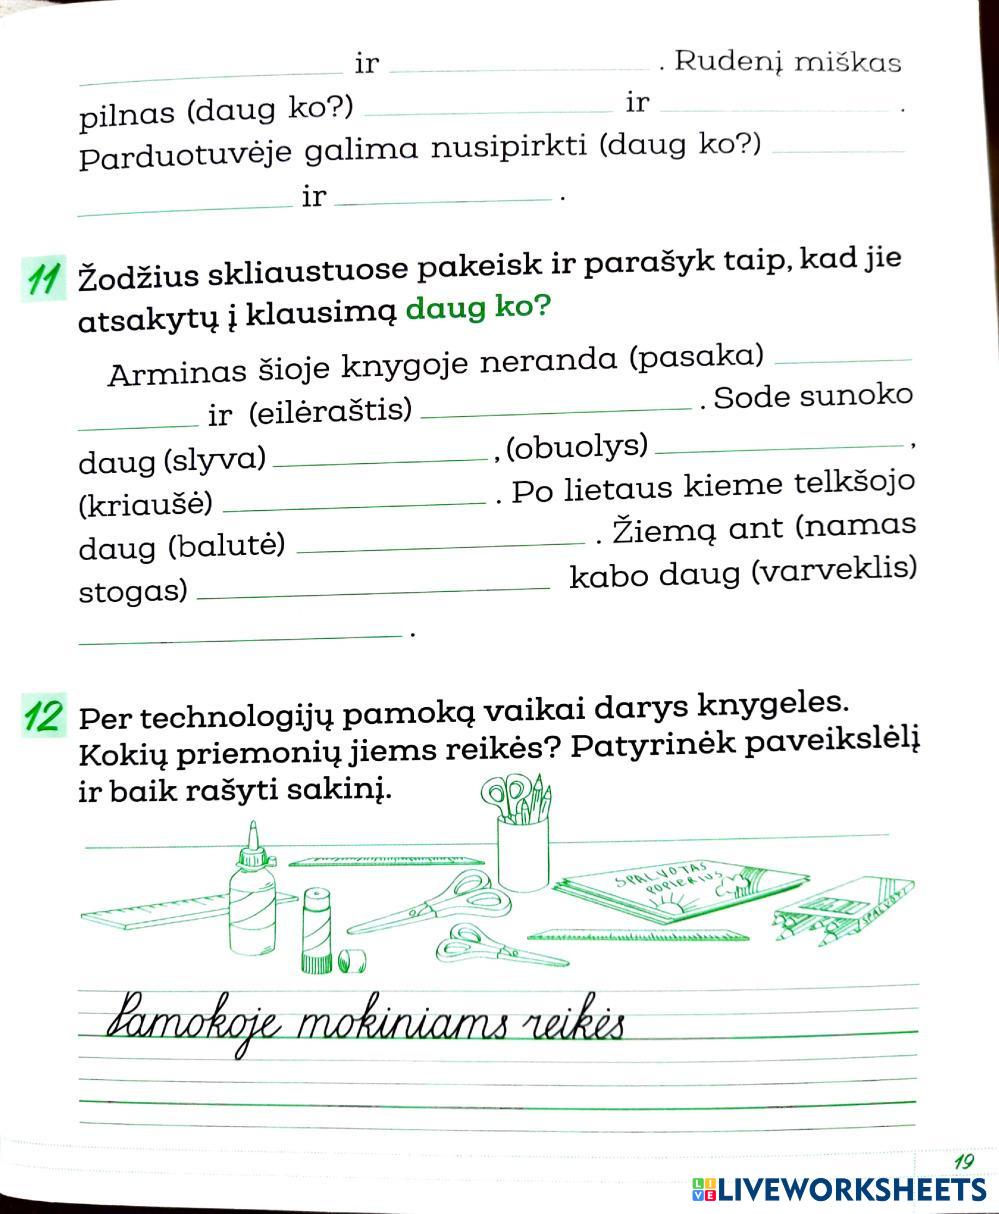 ir . Rudenį miškas
pilnas (daug ko?) ir .
Parduotuvėje galima nusipirkti (daug ko?)
ir .
11 Žodžius skliaustuose pakeisk ir parašyk taip, kad jie
atsakytų į klausimą daug ko?
Arminas šioje knygoje neranda (pasaka)
ir (eilėraštis) . Sode sunoko
daug (slyva) , (obuolys) ,
(kriaušė) . Po lietaus kieme telkšojo
daug (balutė) . Žiemą ant (namas
stogas) kabo daug (varveklis)
.
12 Per technologijų pamoką vaikai darys knygeles.
Kokių priemonių jiems reikės? Patyrinėk paveikslėlį
ir baik rašyti sakinį.
SPALVOTAS
POPIERIUS
SPALVOTI
Pamokoje mokiniams reikės
19
LIVEWORKSHEETS